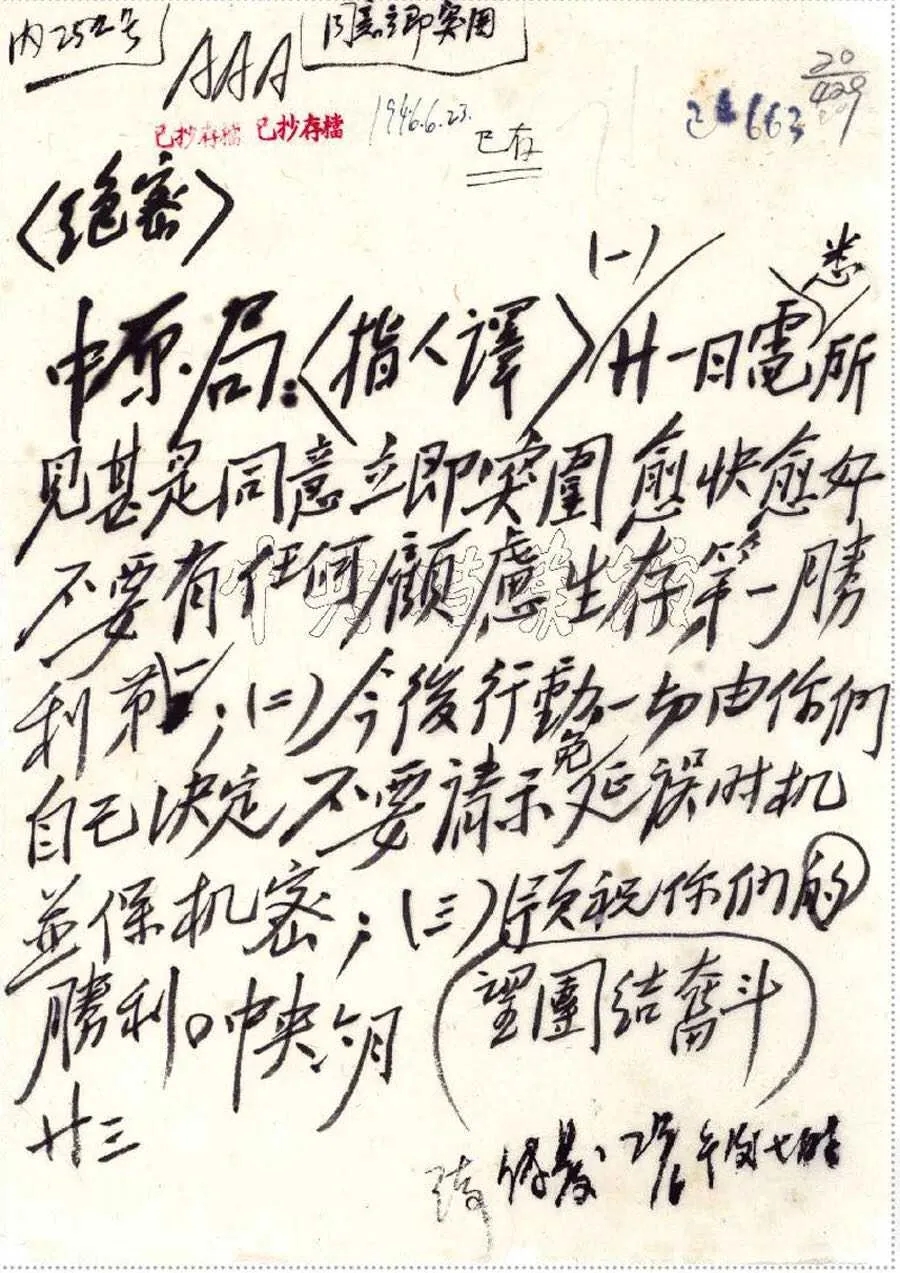 内252号
同意立即突围
AAA
已抄存檔 已抄存檔
1946.6.23.
已存
663
20
429
〈绝密〉
(一)
悉
中原局:〈指人譯〉廿一日電所
見甚是同意立即突圍愈快愈好
不要有任何顧慮生存第一勝
利第一;(二)今後行動一切由你們
自己決定不要請示免延誤时机
並保机密;(三)預祝你們的
勝利。中央 六月
望團结奮斗
廿三
午后七时